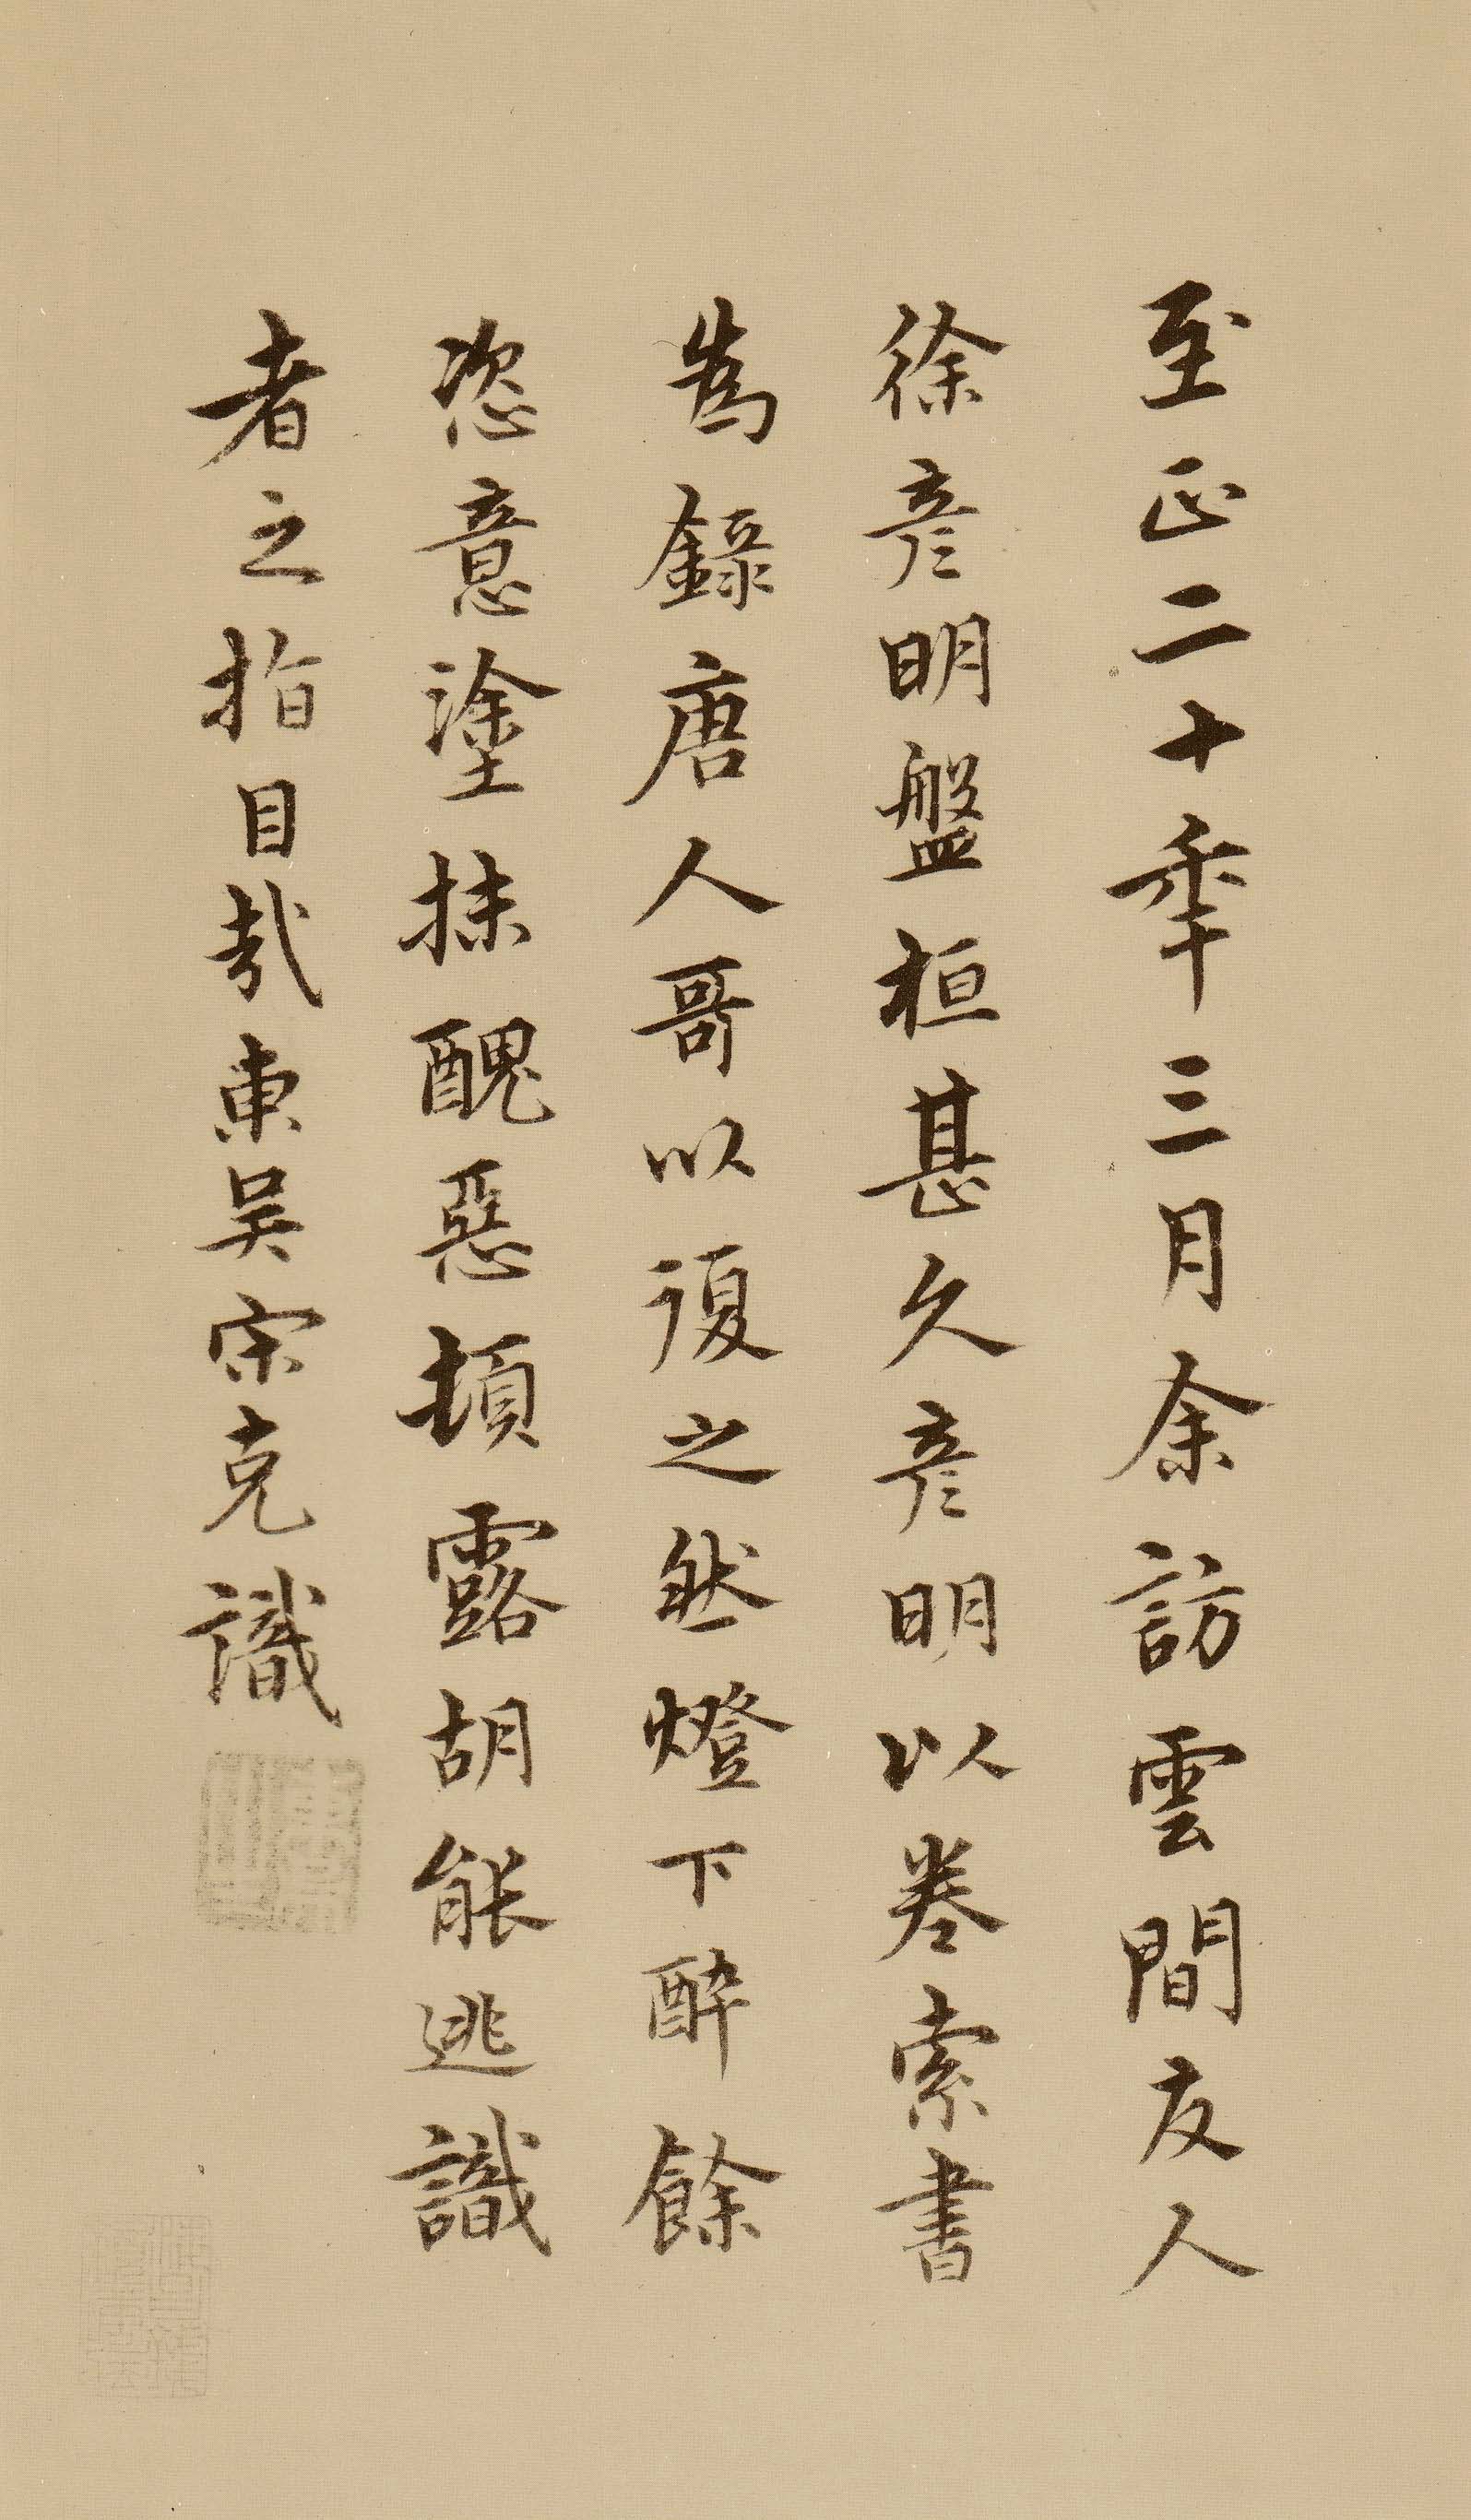 至正二十年三月余訪雲間友人
徐彥明盤桓甚久彥明以卷索書
為錄唐人哥以復之然燈下醉餘
恣意塗抹醜惡頓露胡能逃識
者之指目哉東吳宋克識